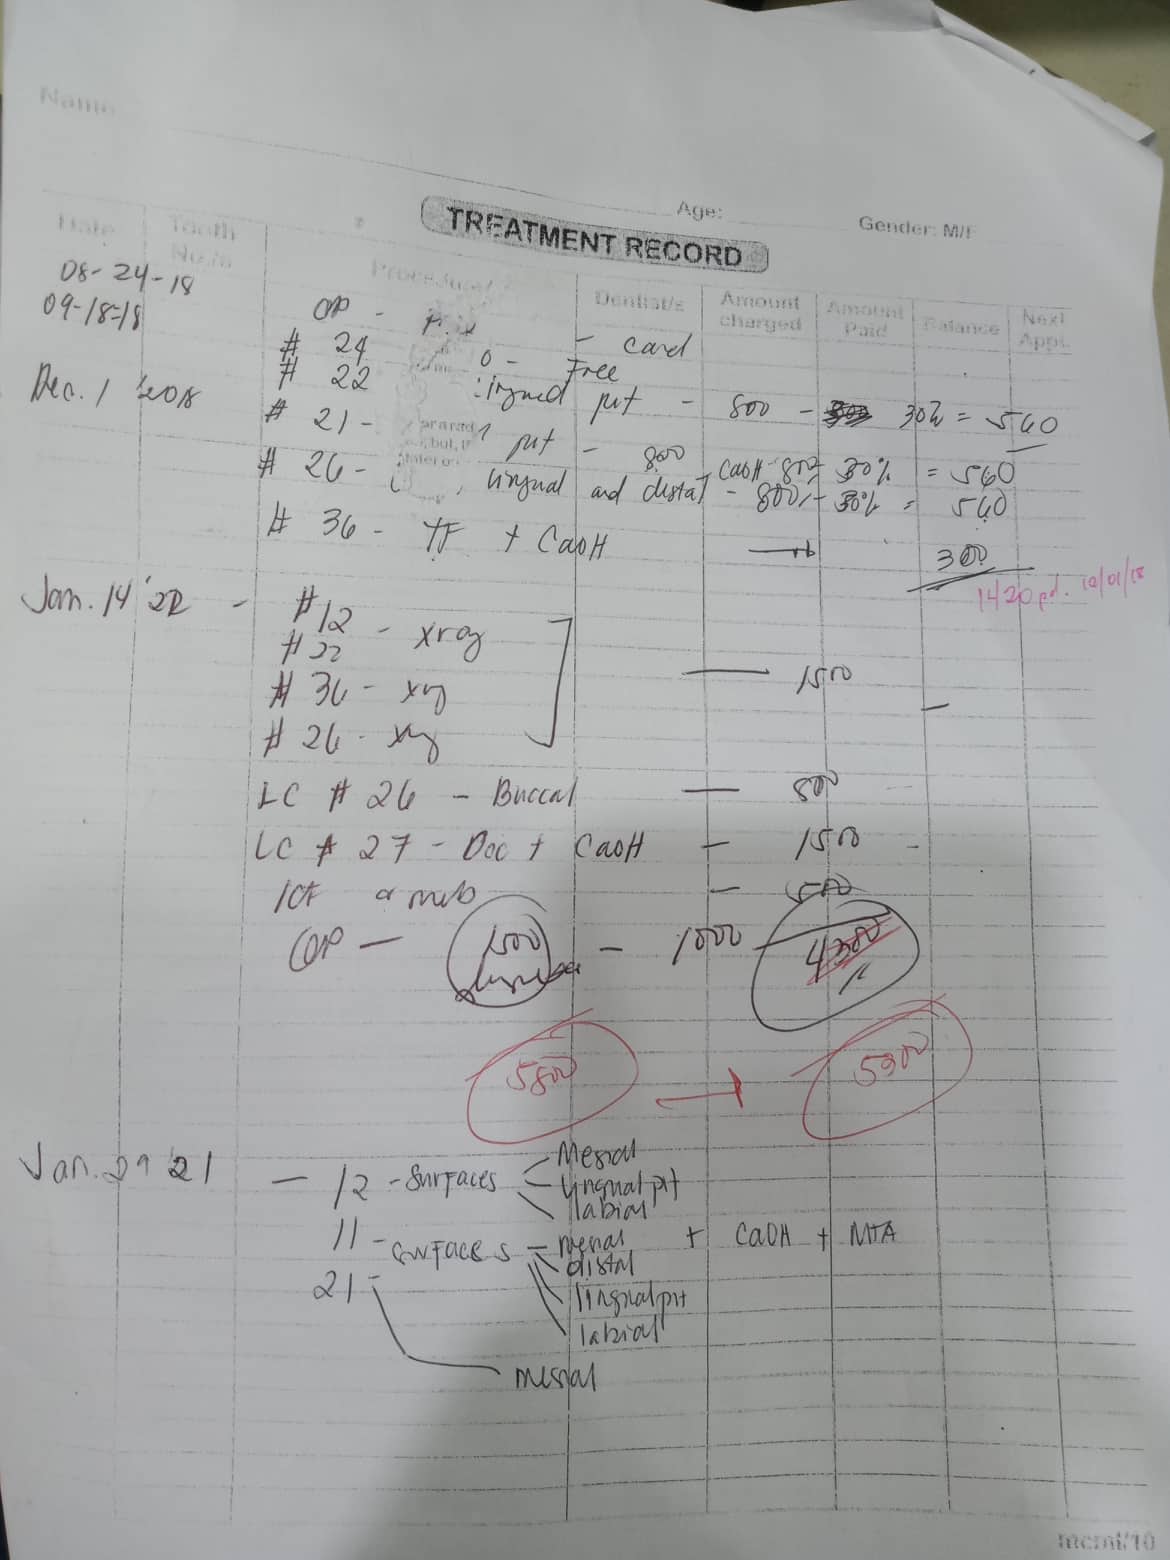 Name
Age:
Gender: M/F
TREATMENT RECORD
Date Tooth No./s Procedure/ Dentist/s Amount charged Amount Paid Balance Next Appt.
08-24-18 OP -
09-18-18 # 24 - card
# 22 0 - Free
Dec. 1 2018 lingual pit - 800 - 30% = 560
# 21 - pit - 800 CaOH - 800 30% = 560
# 26 - lingual and distal - 800 - 30% = 560
# 36 - TF + CaOH 300
1420 pd. 12/01/18
Jan. 14 '22 - #12 - xray
# 22
# 36 - xry 1500
# 26 - xry
LC # 26 - Buccal — 800
LC # 27 - Doc + CaOH - 1500 -
- 500
OP — 1500 - 1000 4300
5800 5300
Jan. 29 21 - 12 - surfaces - Mesial
lingual pit
labial
11 - surfaces - mesial + CaOH + MTA
distal
21 - lingual pit
labial
mesial
mcmi/10